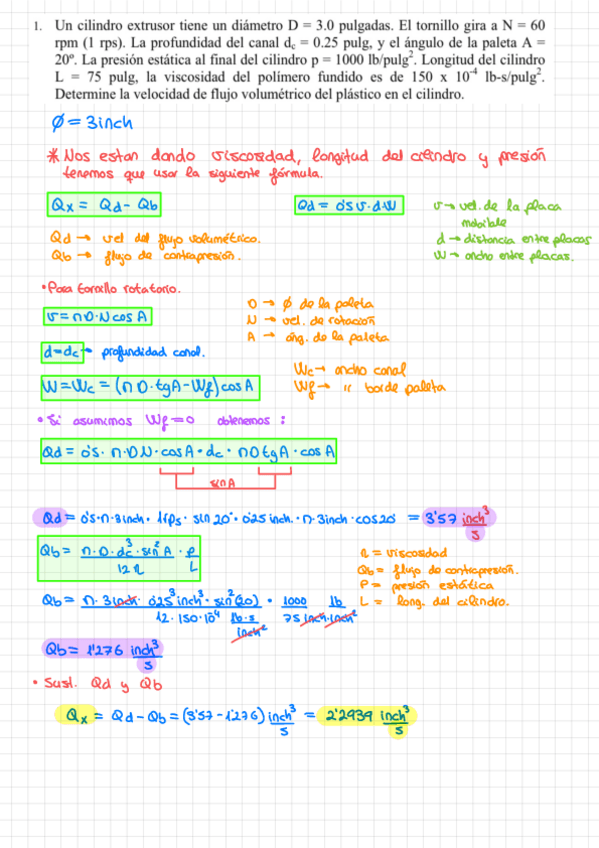 1. Un cilindro extrusor tiene un diámetro D = 3.0 pulgadas. El tornillo gira a N = 60
rpm (1 rps). La profundidad del canal dc = 0.25 pulg, y el ángulo de la paleta A =
20º. La presión estática al final del cilindro p = 1000 lb/pulg². Longitud del cilindro
L = 75 pulg, la viscosidad del polímero fundido es de 150 x 10⁻⁴ lb-s/pulg².
Determine la velocidad de flujo volumétrico del plástico en el cilindro.
Ø = 3inch
* Nos estan dando viscosidad, longitud del cilindro y presión
tenemos que usar la siguiente fórmula.
Qx = Qd - Qb
Qd = 0's v·d·W
v → vel. de la placa
movible
d → distancia entre placas
W → ancho entre placas.
Qd → vel del flujo volumétrico.
Qb → flujo de contrapresión.
• Para tornillo rotatorio.
v = π D·N cos A
D → Ø de la paleta
N → vel. de rotación
A → áng. de la paleta
d = dc → profundidad canal.
W = Wc = (π D·tg A - Wf) cos A
Wc → ancho canal
Wf → " borde paleta
• Si asumimos Wf = 0 obtenemos :
Qd = 0's · π · D N · cos A · dc · π D tg A · cos A
sin A
Qd = 0's·π·3inch · 1rps · sin 20º · 0'25 inch. · π · 3inch · cos 20 = 3'57 inch³/s
Qb = π·D·dc³·sin² A / 12 η · P / L
η = viscosidad
Qb = flujo de contrapresión.
P = presión estática
L = long. del cilindro.
Qb = π·3inch · 0'25³ inch³ · sin² (20) / 12 · 150·10⁻⁴ lb·s / inch² · 1000 lb / 75 inch·inch²
Qb = 1'276 inch³/s
• Sust. Qd y Qb
Qx = Qd - Qb = (3'57 - 1'276) inch³/s = 2'2939 inch³/s